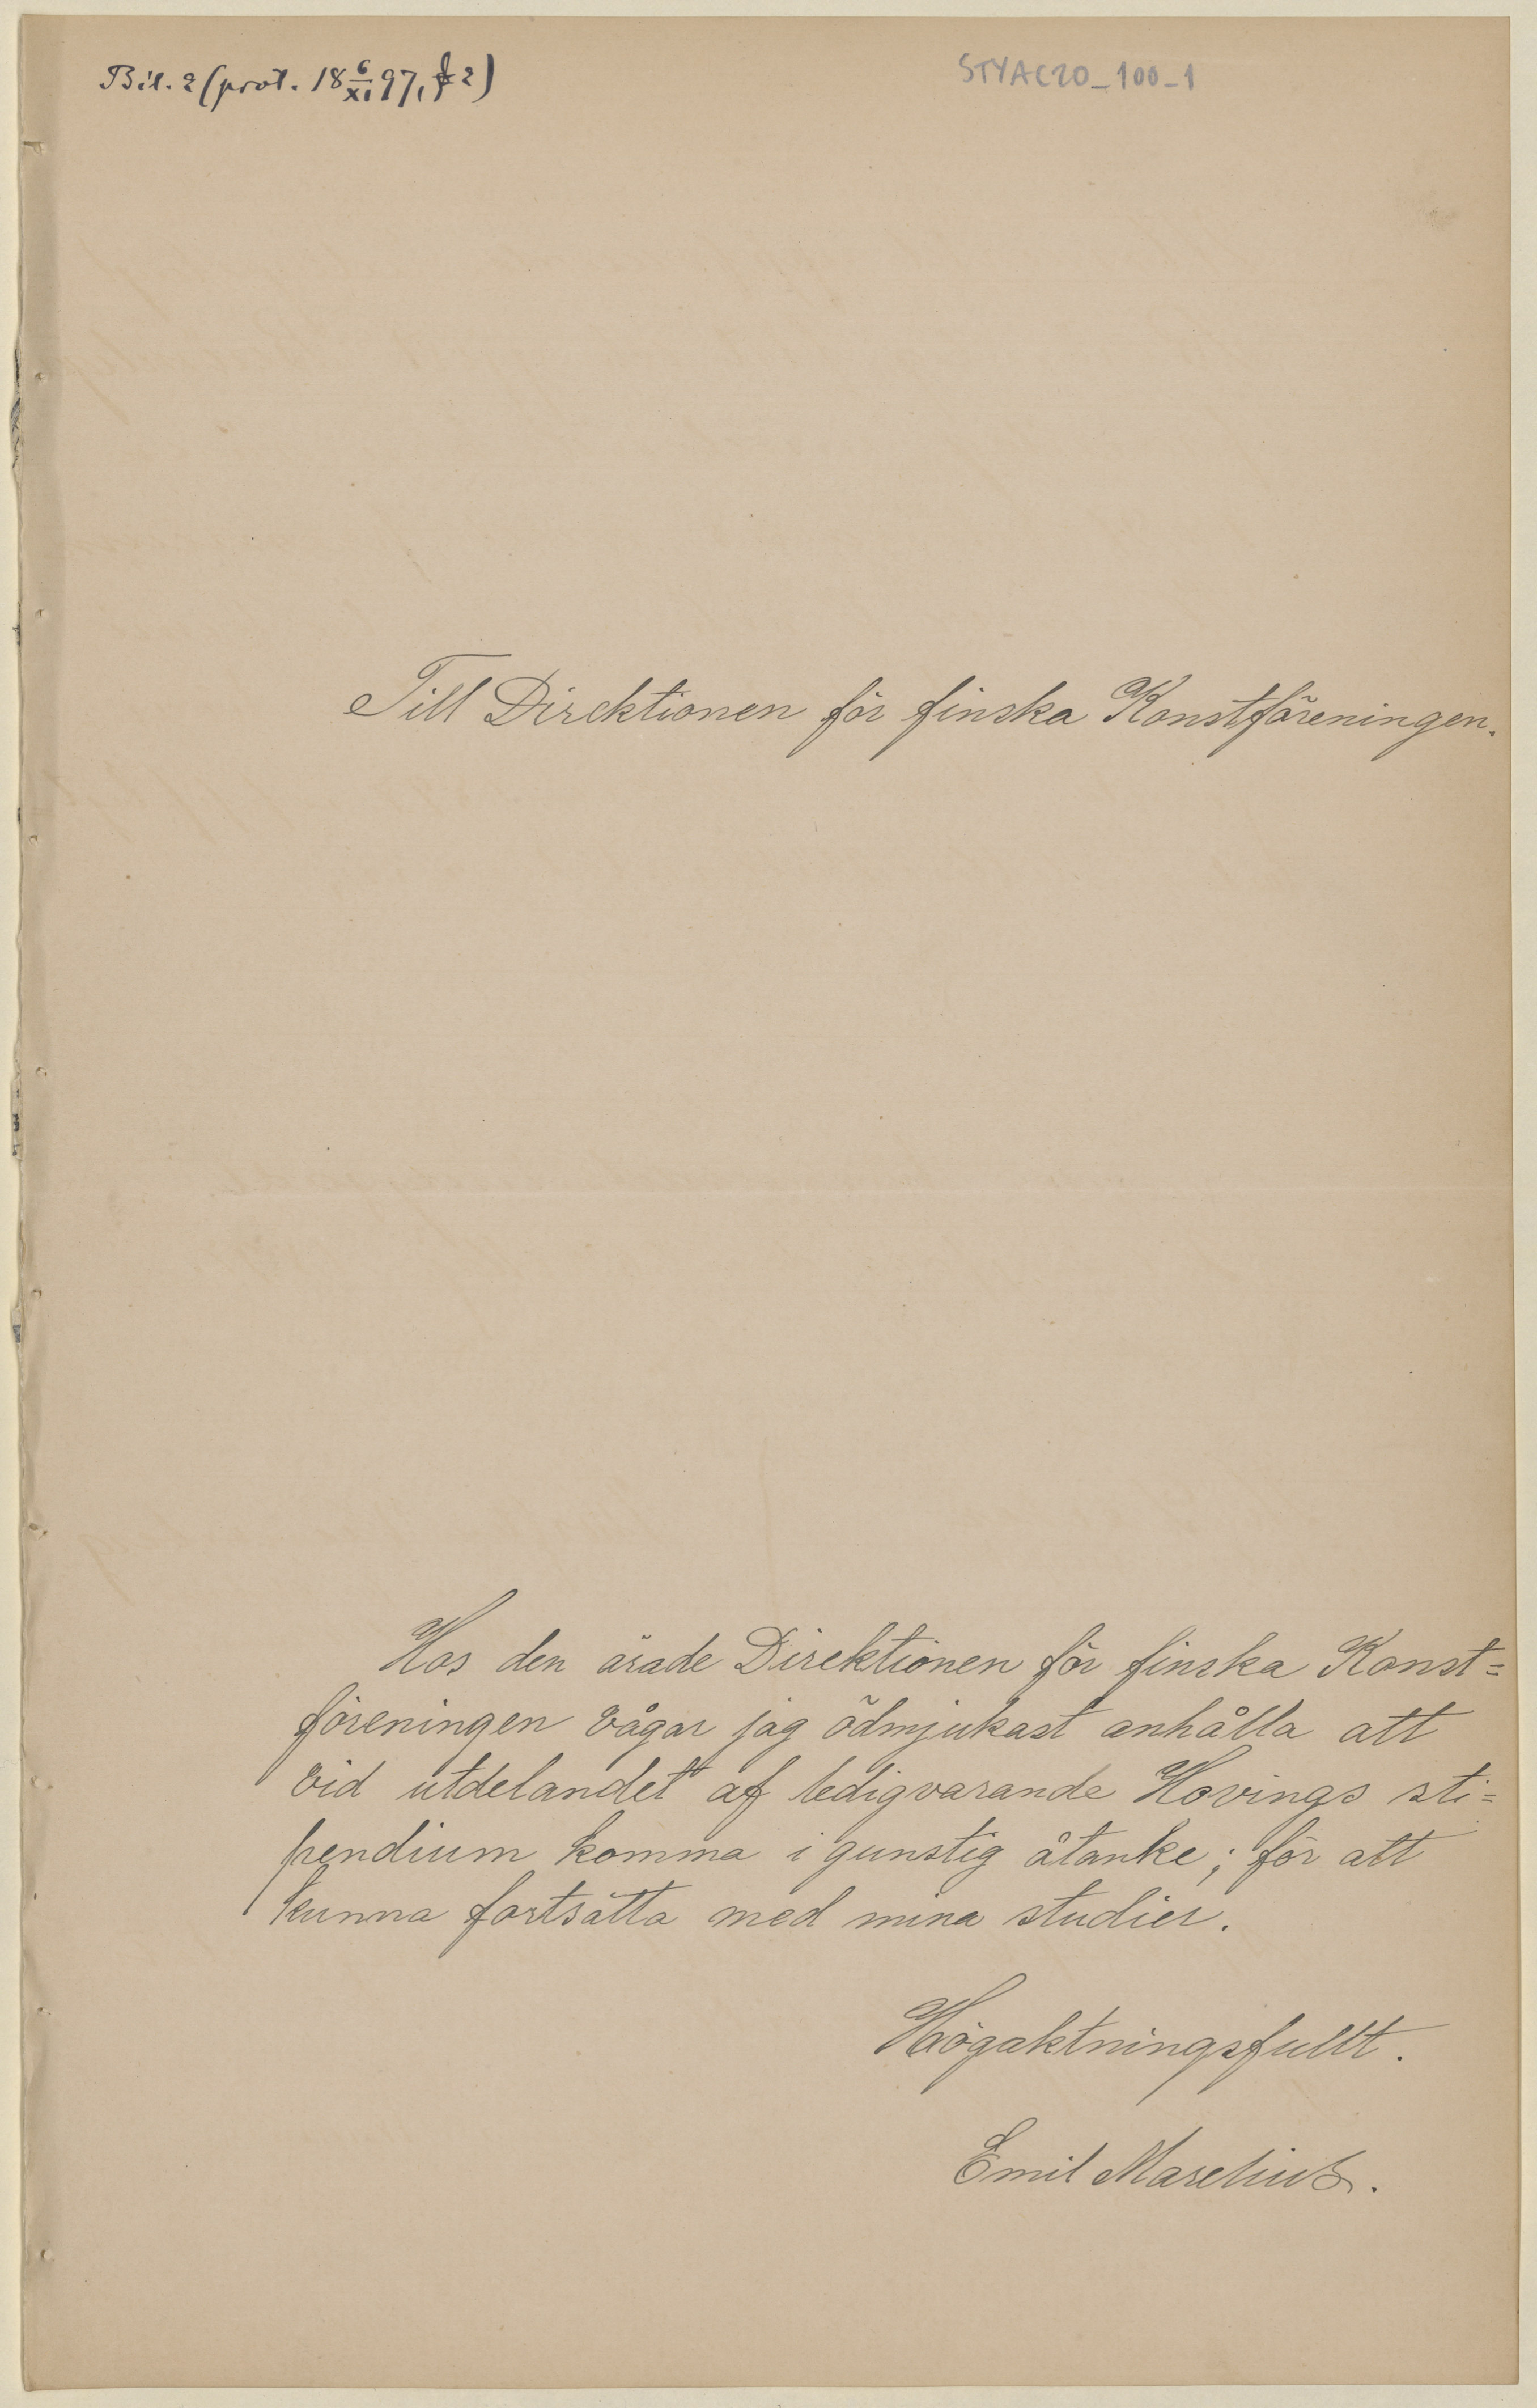 Bil. 2 (prot. 18 6/XI 97, § 2)
STYAC20_100_1
Till Direktionen för finska Konstföreningen.
Hos den ärade Direktionen för finska Konst=
föreningen vågar jag ödmjukast anhålla att
vid utdelandet af ledigvarande Hovings sti=
pendium komma i gunstig åtanke; för att
kunna fortsätta med mina studier.
Högaktningsfullt.
Emil Marelius.